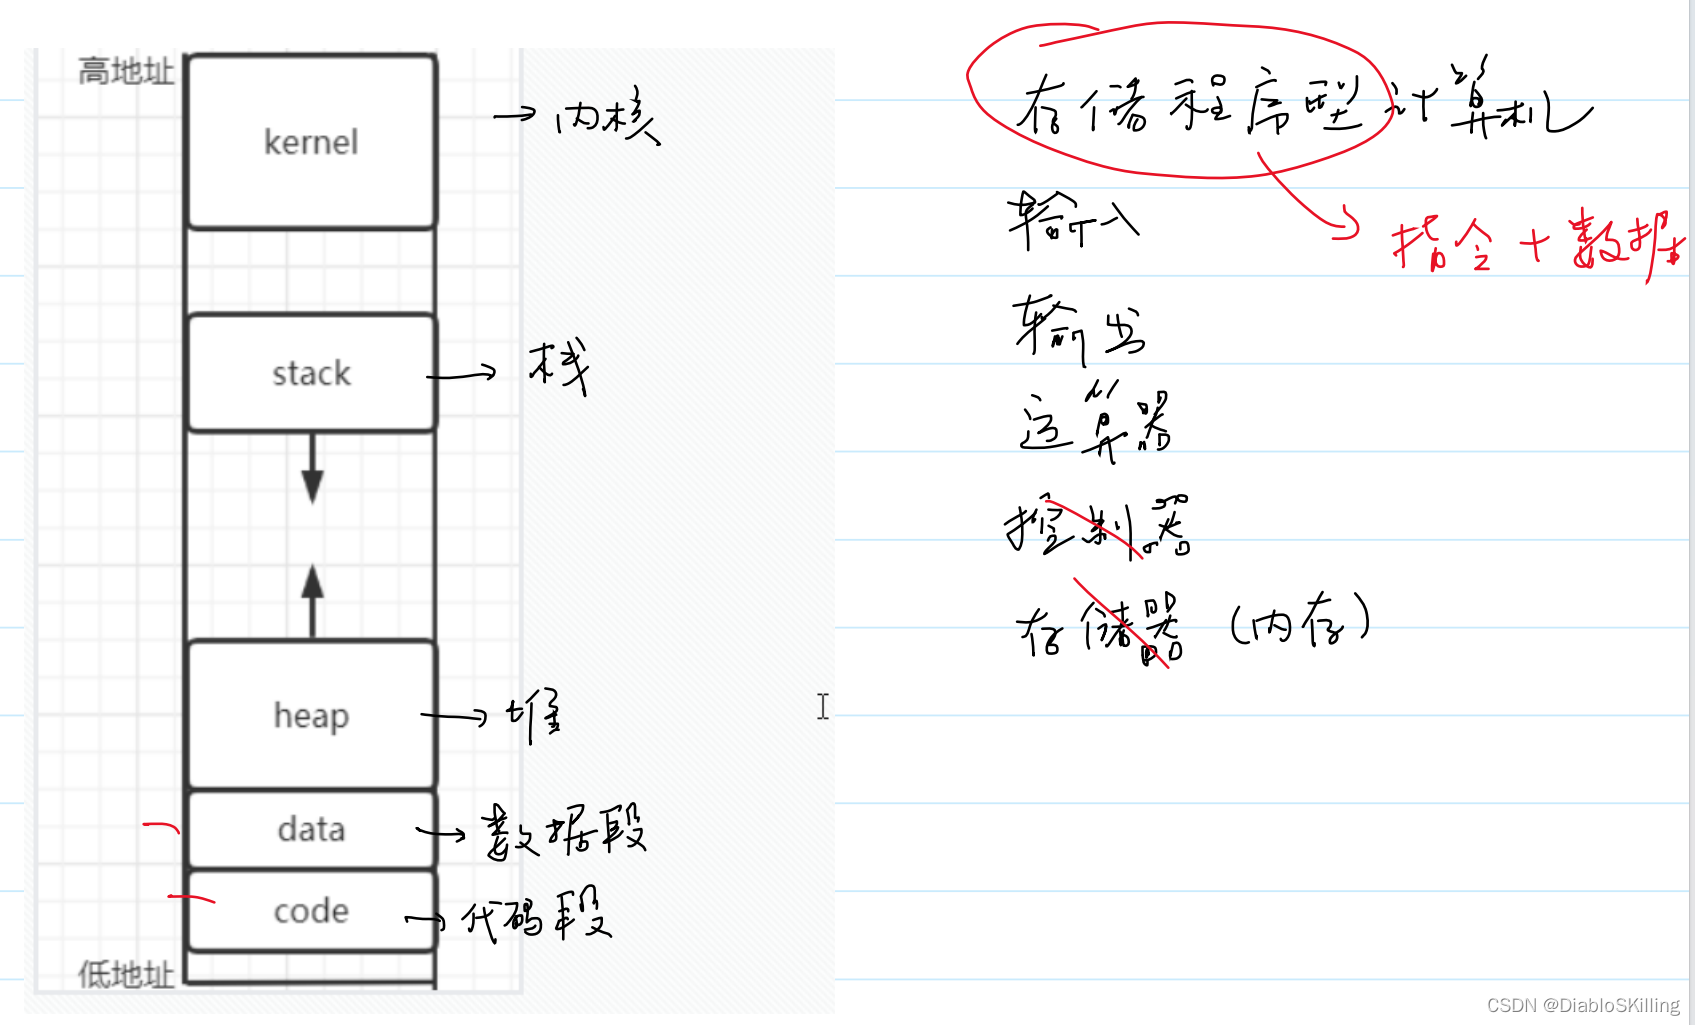 高地址
kernel
→内核
stack
→栈
heap
→堆
data
→数据段
code
→代码段
低地址
存储程序型计算机
指令+数据
输入
输出
运算器
控制器
存储器(内存)
CSDN @DiabloSKilling